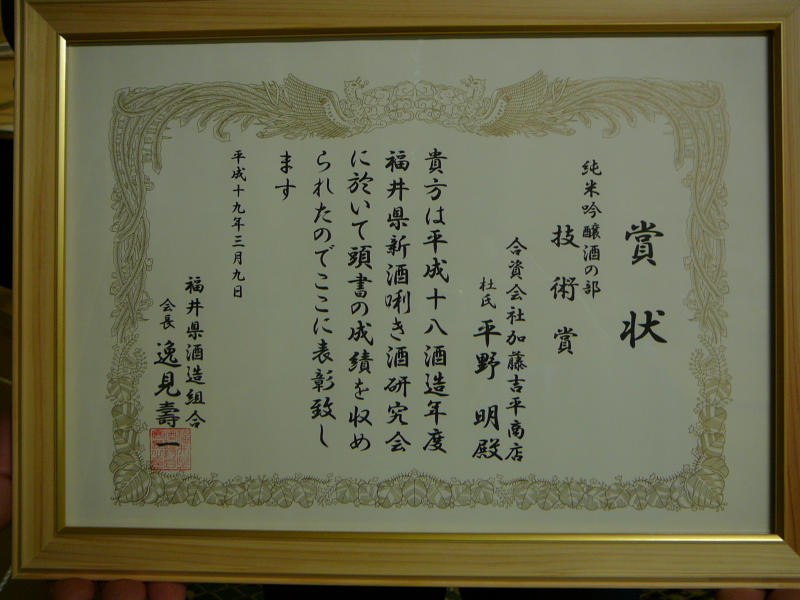 賞状
純米吟醸酒の部
技術賞
合資会社加藤吉平商店
杜氏 平野 明殿
貴方は平成十八酒造年度
福井県新酒唎き酒研究会
に於いて頭書の成績を収め
られたのでここに表彰致し
ます
平成十九年三月九日
福井県酒造組合
会長 逸見壽一